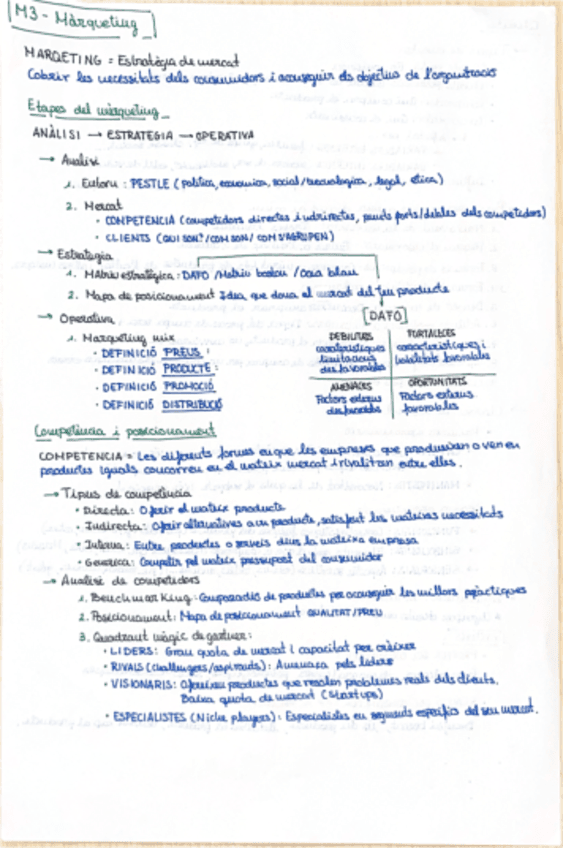 M3 - Màrqueting
MARQETING = Estratègia de mercat
Cobrir les necessitats dels consumidors i aconseguir els objectius de l'organització
Etapes del màrqueting
ANÀLISI → ESTRATEGIA → OPERATIVA
→ Analisi
1. Entorn : PESTLE (política, economica, social/tecnologica, legal, etica)
2. Mercat
• COMPETENCIA (competidors directes i indirectes, punts forts/debles dels competidors)
• CLIENTS (QUI SON? / COM SON / COM S'AGRUPEN)
→ Estrategia
1. Matriu estratègica : DAFO / Matriu boston / Oceà blau
2. Mapa de posicionament Idea que dona el mercat del teu producte
→ Operativa
1. Marqueting mix
• DEFINICIÓ PREUS :
• DEFINICIÓ PRODUCTE :
• DEFINICIÓ PROMOCIÓ
• DEFINICIÓ DISTRIBUCIÓ
[DAFO]
DEBILITATS
característiques limitacions desfavorables
FORTALECES
característiques i habilitats favorables
AMENACES
Factors externs desfavorables
OPORTUNITATS
Factors externs favorables
Competència i posicionament
COMPETENCIA = Les diferents formes en que les empreses que produeixen o venen
productes iguals concorren en el mateix mercat i rivalitzen entre elles.
→ Tipus de competència
• Directa : Oferir el mateix producte
• Indirecta : Oferir alternatives a un producte, satisfent les mateixes necessitats
• Interna : Entre productes o serveis dins la mateixa empresa
• Generica : Competir pel mateix pressupost del consumidor
→ Analisi de competidors
1. Benchmarking : Comparació de productes per aconseguir les millors pràctiques
2. Posicionament : Mapa de posicionament QUALITAT/PREU
3. Quadrant màgic de gartner :
• LIDERS : Gran quota de mercat i capacitat per créixer
• RIVALS (challengers/aspirants) : Amenaça pels líders
• VISIONARIS : Ofereixen productes que resolen problemes reals dels clients.
Baixa quota de mercat (Startups)
• ESPECIALISTES (Niche players) : Especialistes en segments específics del seu mercat.